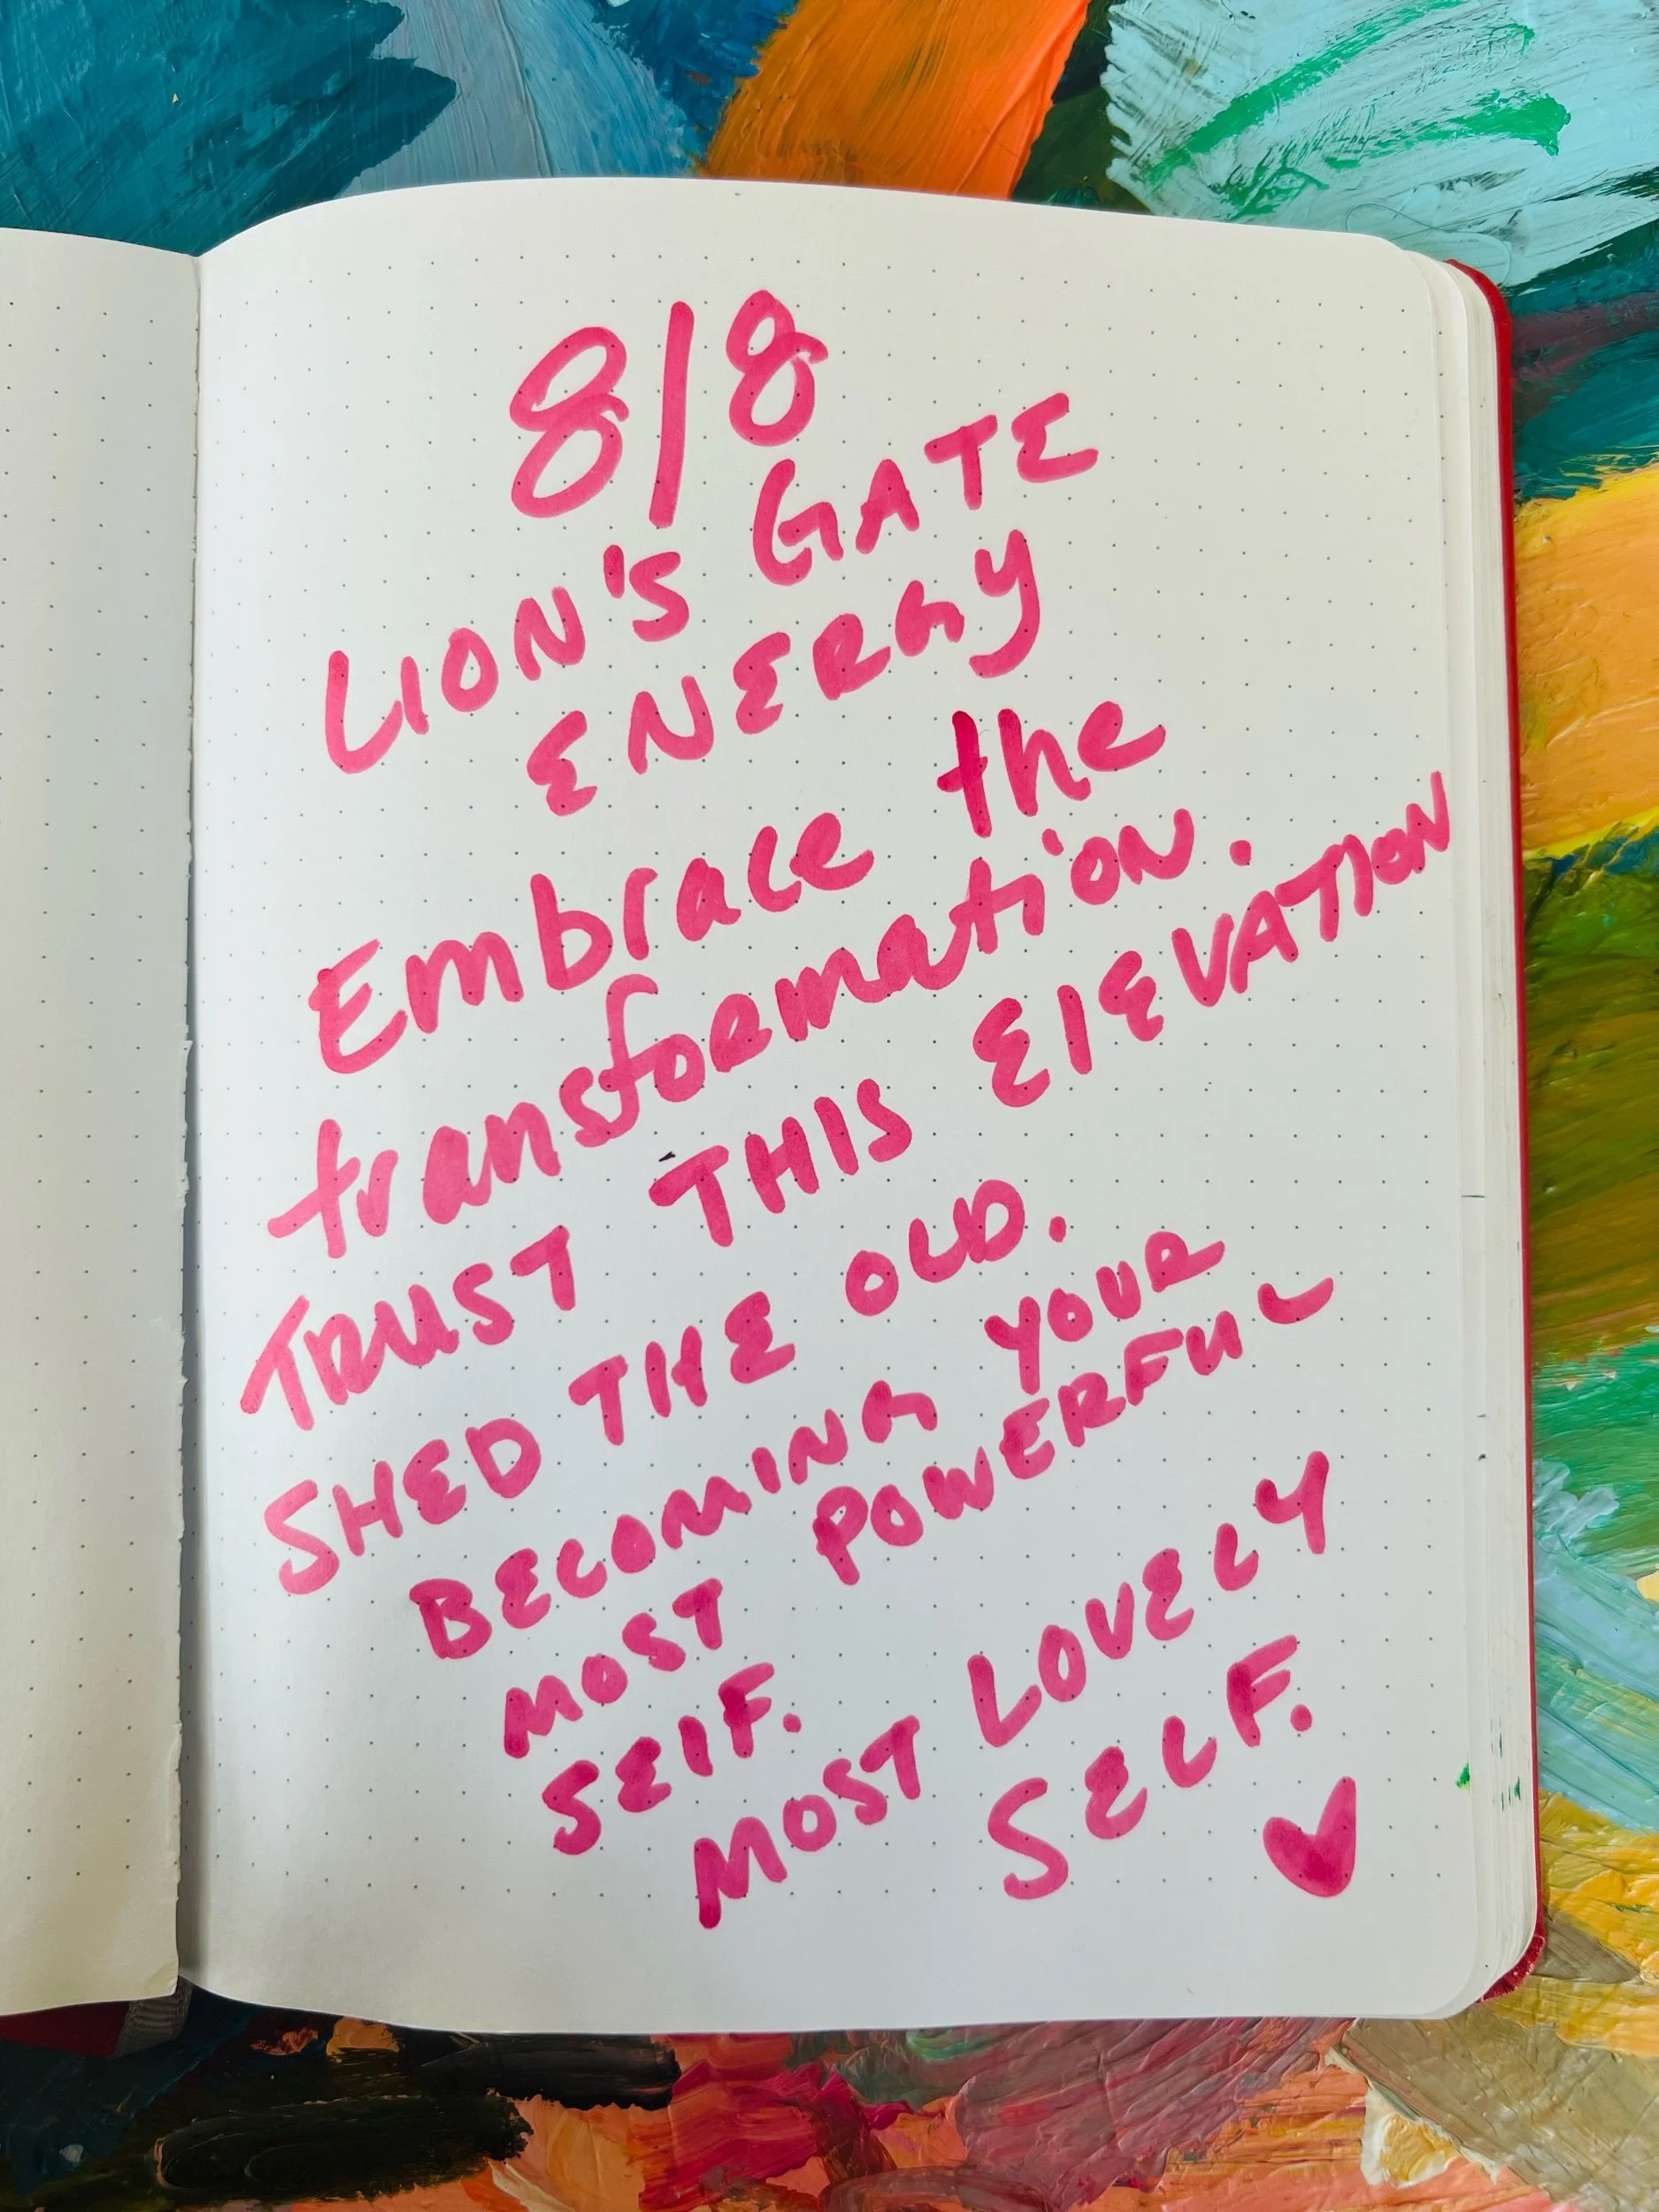 8/8
LION'S GATE
ENERGY
Embrace the
transformation.
TRUST THIS ElEVATION
SHED THE OLD.
BECOMING YOUR
MOST POWERFUL
SElF.
MOST LOVELY
SELF.